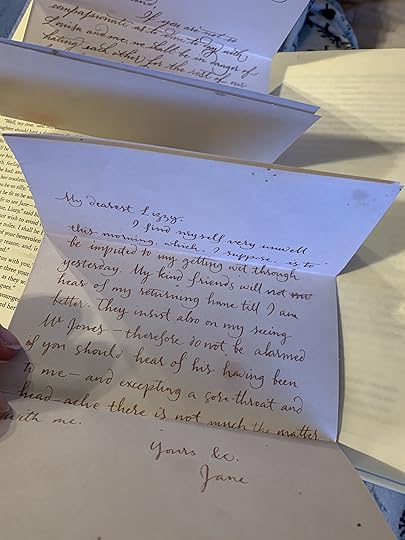 If you are not so
compassionate as to dine to-day with
Louisa and me, we shall be in danger of
hating each other for the rest of our
"Well, my dear,"
to see Jane
miles. I shall be
My dearest Lizzy,
I find myself very unwell
this morning, which, I suppose, is to
be imputed to my getting wet through
yesterday. My kind friends will not
hear of my returning home till I am
better. They insist also on my seeing
Mr Jones—therefore do not be alarmed
if you should hear of his having been
to me—and excepting a sore-throat and
head-ache there is not much the matter
with me.
Yours &c.
Jane